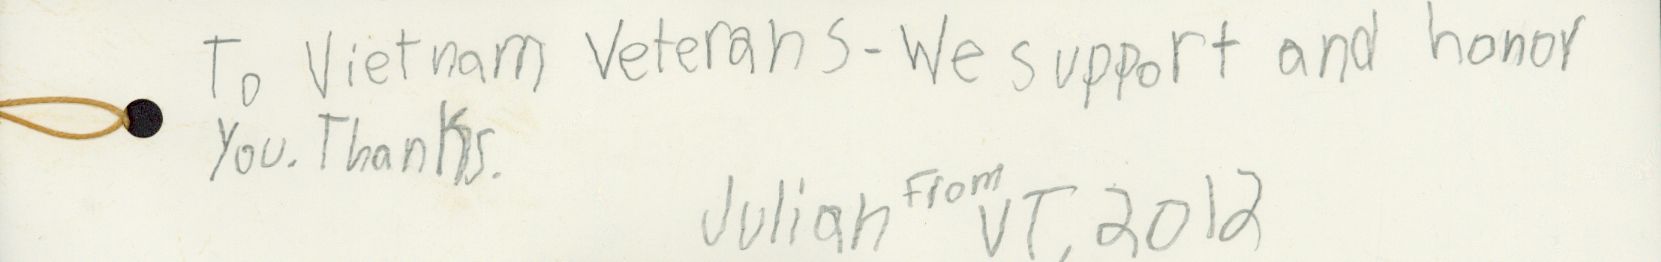 To Vietnam Veterans - We support and honor
you. Thanks.
Julian From VT, 2012